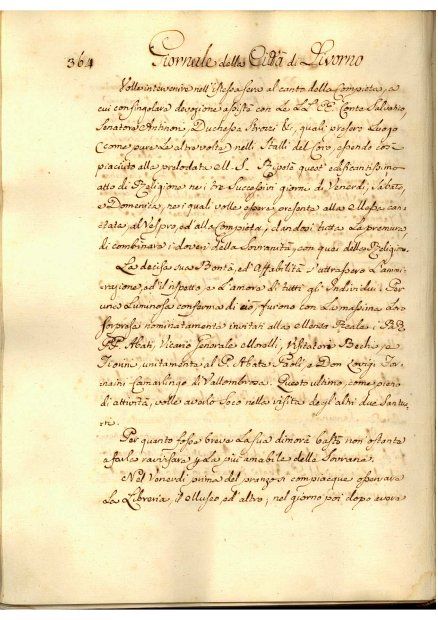 364 Giornale della Città di Livorno
Volle intervenire nell'istessa sera al canto della Compieta, a
cui con singolare devozione assistè con Le LL. EE. Conte Salvatico,
Senatore Antinori, Duchessa Strozzi &c, quali presero Luogo
(come pure Le altre volte) nelli Stalli del Coro, essendo così
piaciuto alla prelodata M. S. Ripetè quest' edificantissimo
atto di Religione nei tre Successivi giorni di Venerdì, Sabato,
e Domenica, nei quali volle essere presente alla Messa can-
tata, al Vespro, ed alla Compieta, dandosi tutta la premura
di combinare i doveri della Sovranità, con quei della Religione.
La decisa sua Bontà, ed Affabilità s'attrassero L'ammi-
razione, ed il rispetto, e L'amore di tutti gli Individui. Per
una Luminosa conferma di ciò, furono con La massima Loro
sorpresa nominatamente invitati alla Mensa Reale i RR.
PP. Abati, Vicario Generale Morelli, Visitatore Beche, e
Fionni, unitamente al P. Abate Paoli, e Don Luigi For-
naini Camarlingo di Vallombrosa. Questo ultimo, come pieno
di attività, volle averlo Seco nella visita degl'altri due Santua-
ri.
Per quanto fosse breve La sua dimora bastò non ostante
a farla ravvisare p. La più amabile delle Sovrane.
Nel Venerdì prima del pranzo si compiacque osservare
La Libreria, il Museo, ed altro; nel giorno poi dopo avere